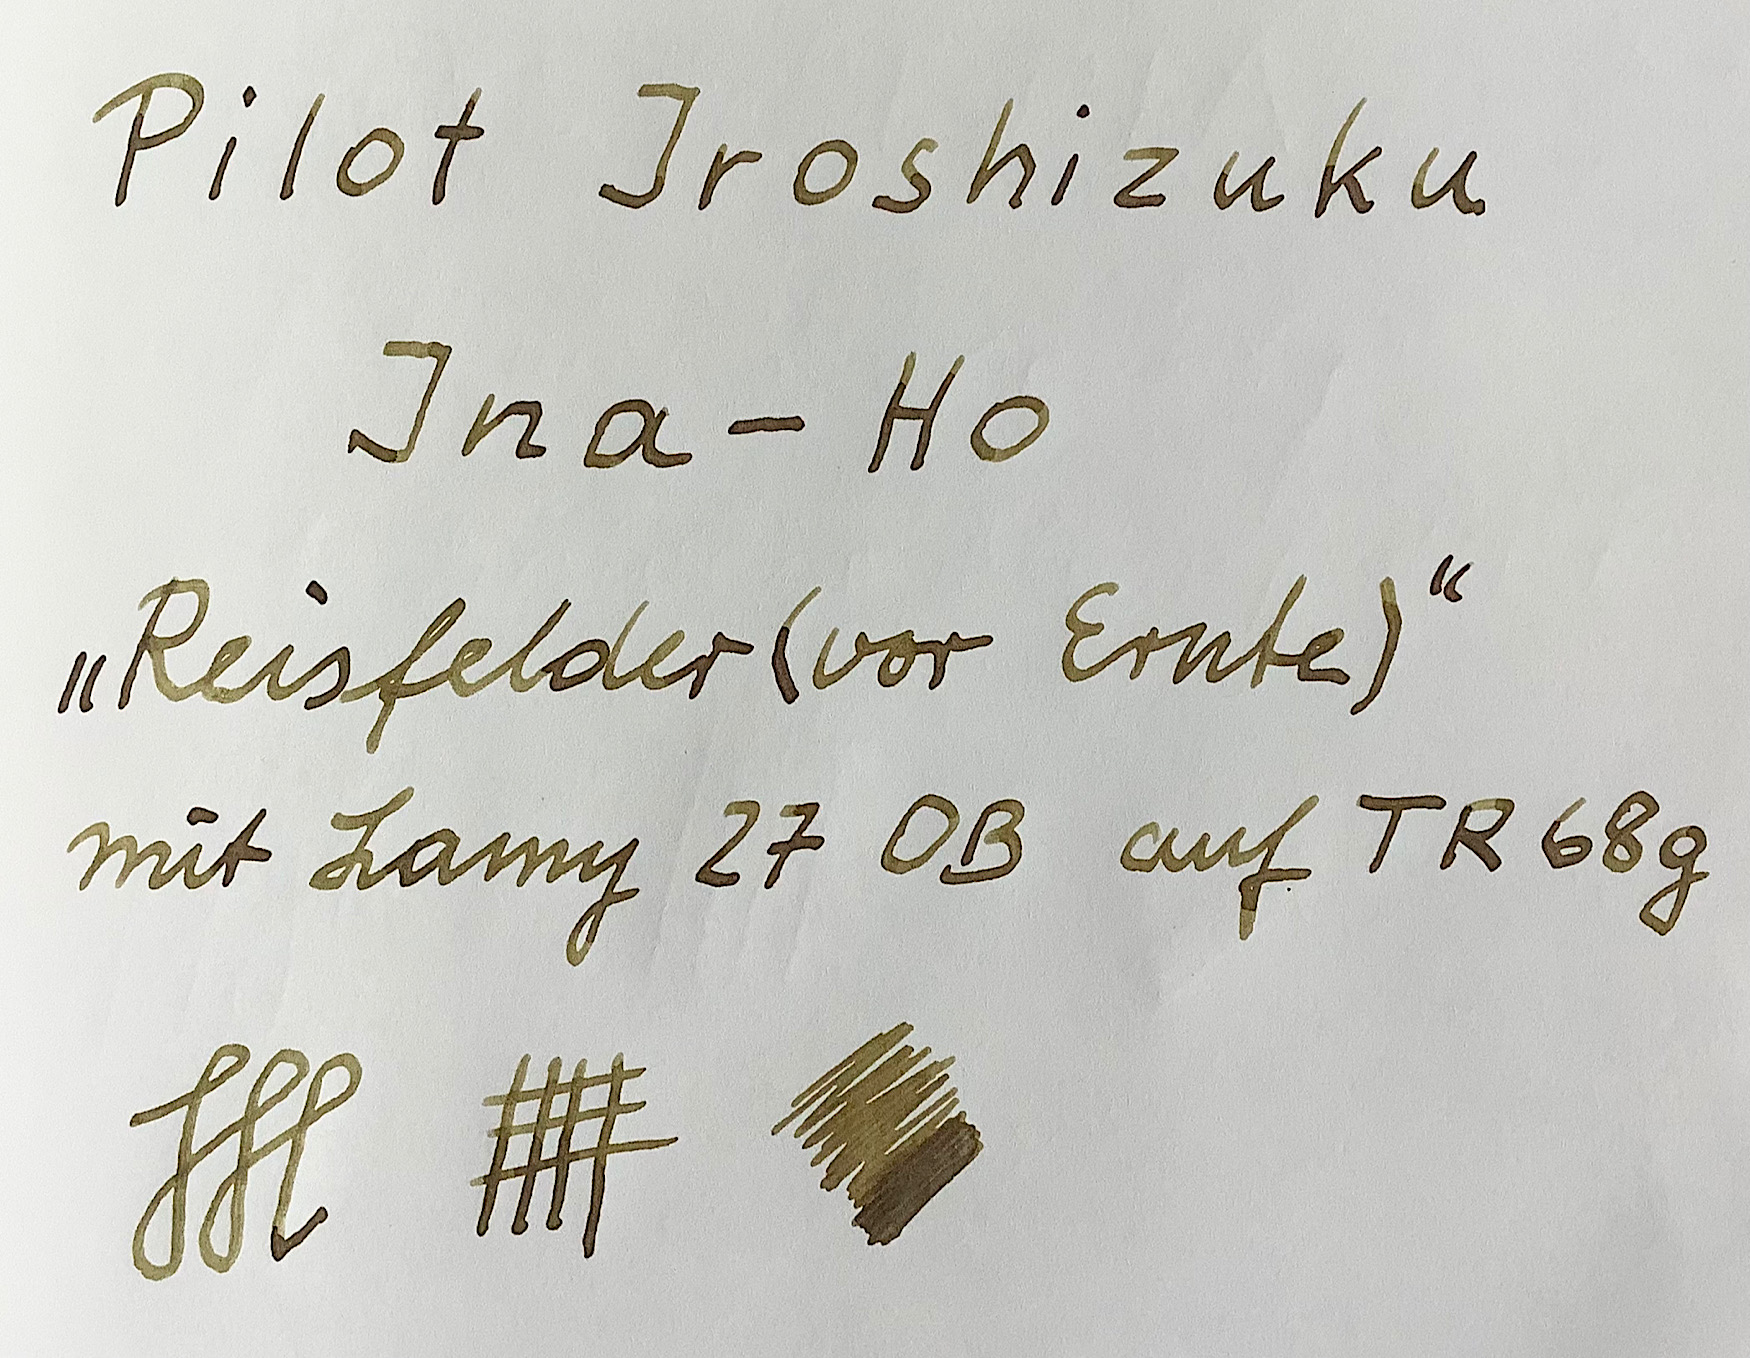 Pilot Iroshizuku
Ina-Ho
„Reisfelder (vor Ernte)“
mit Lamy 27 OB auf TR 68g